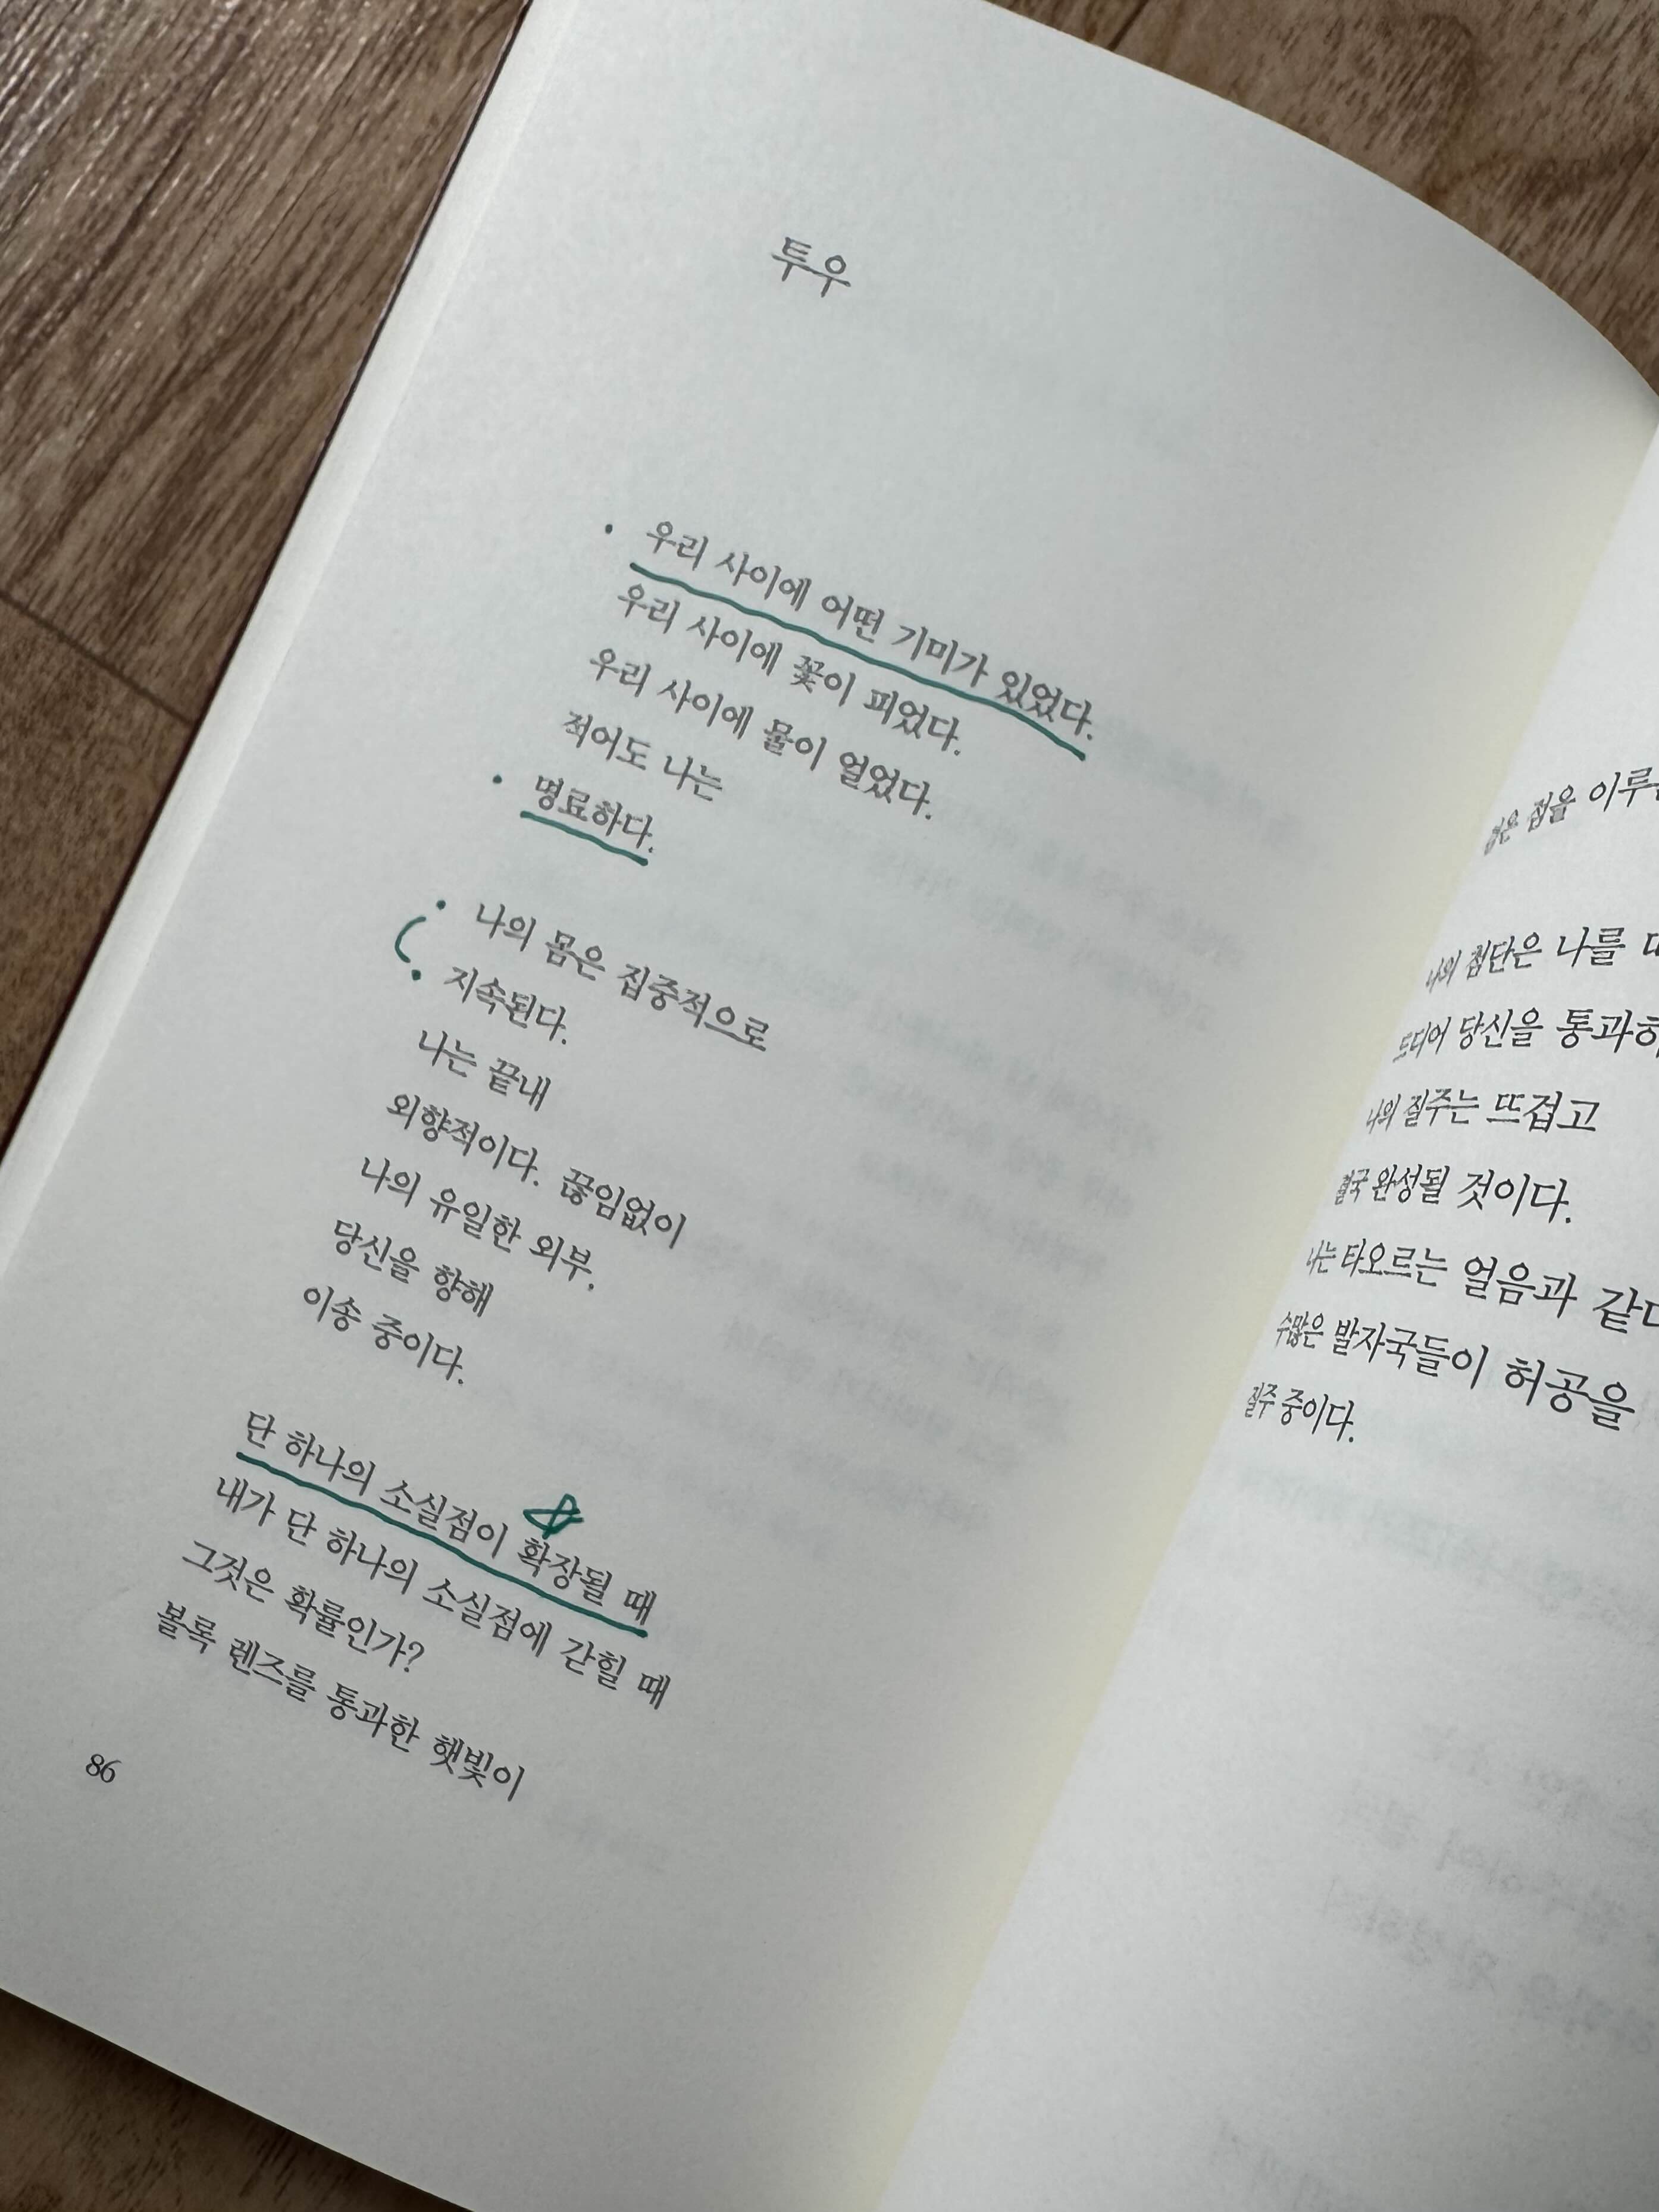 투우
우리 사이에 어떤 기미가 있었다.
우리 사이에 꽃이 피었다.
우리 사이에 물이 얼었다.
적어도 나는
명료하다.
나의 몸은 집중적으로
지속된다.
나는 끝내
외향적이다. 끊임없이
나의 유일한 외부,
당신을 향해
이송 중이다.
단 하나의 소실점이 확장될 때
내가 단 하나의 소실점에 갇힐 때
그것은 확률인가?
볼록 렌즈를 통과한 햇빛이
86
점을
나의 첨단은 나를
드디어 당신을
나의 질주는 뜨겁고
결국 완성될 것이다.
나는 타오르는 얼음과
수많은 발자국들이 허공을
질주 중이다.